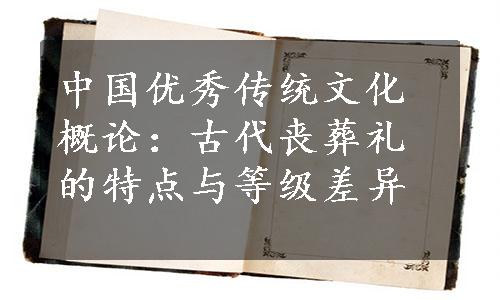 中国优秀传统文化
概论：古代丧葬礼
的特点与等级差异